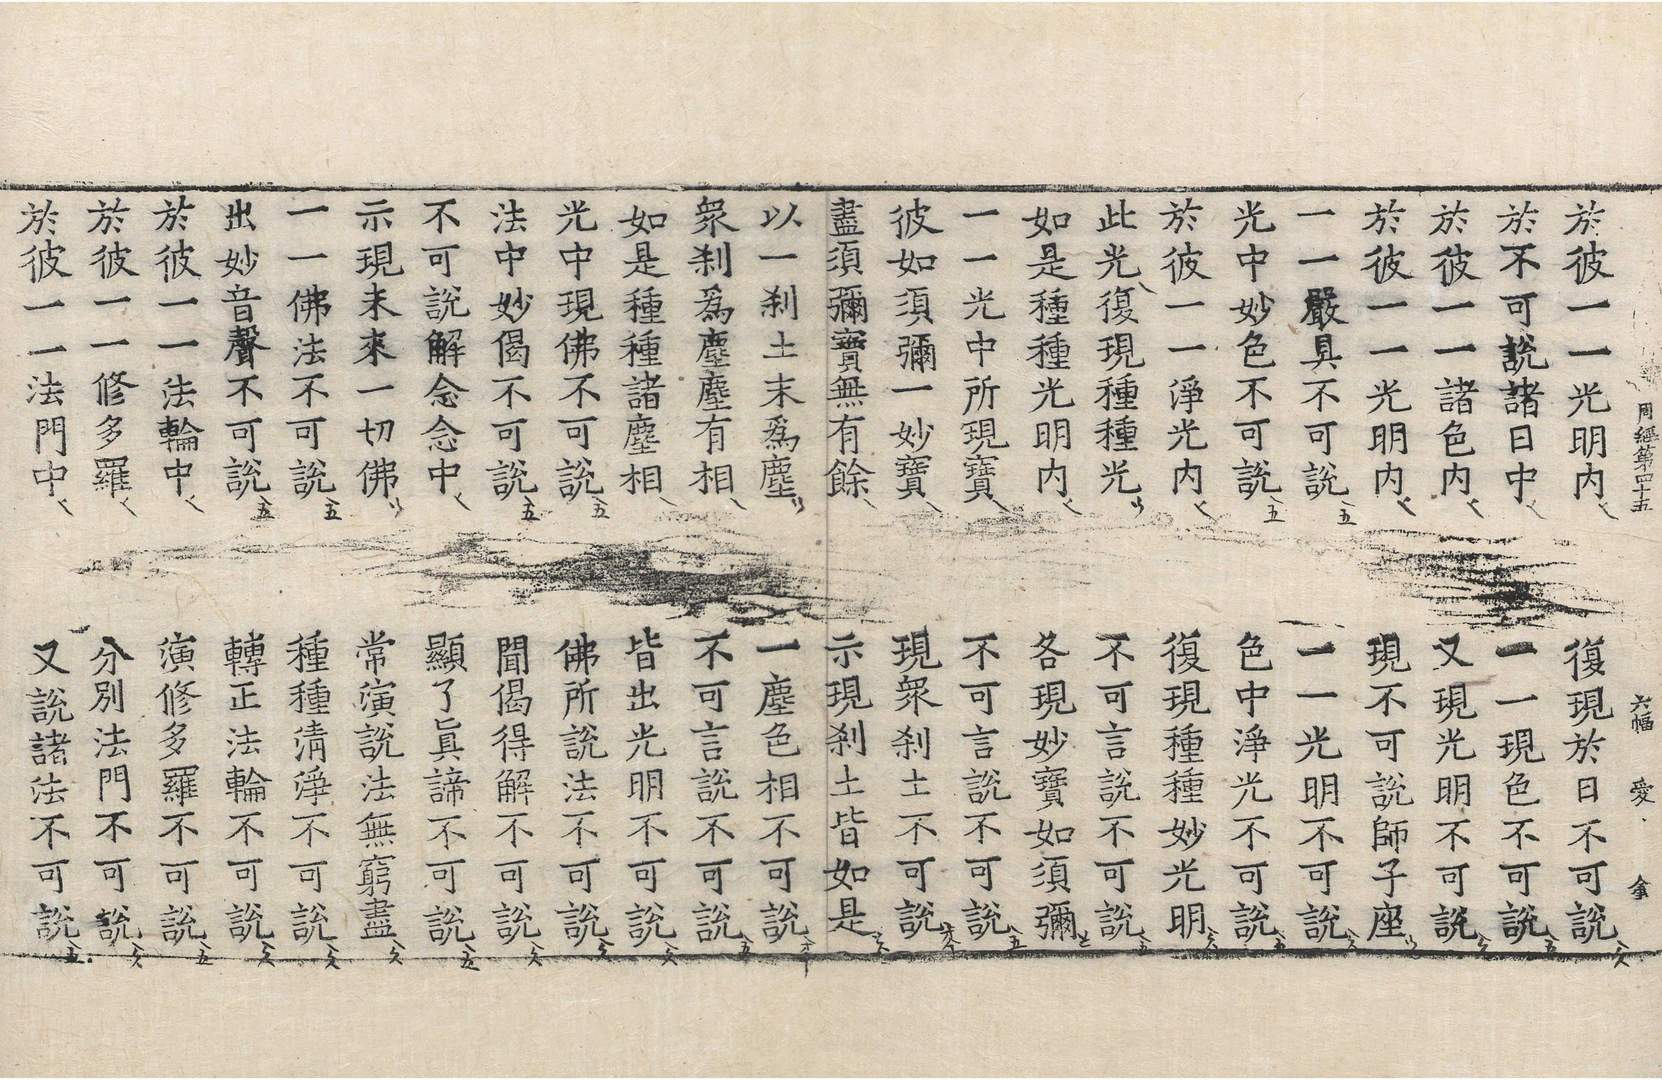 周經第四十五 六幅 愛
於彼一一光明內 復現於日不可說
於不可說諸日中 一一現色不可說
於彼一一諸色內 又現光明不可說
於彼一一光明內 現不可說師子座
一一嚴具不可說 一一光明不可說
光中妙色不可說 色中淨光不可說
於彼一一淨光內 復現種種妙光明
此光復現種種光 不可言說不可說
如是種種光明內 各現妙寶如須彌
一一光中所現寶 不可言說不可說
彼如須彌一妙寶 現衆刹土不可說
盡須彌寶無有餘 示現刹土皆如是
以一刹土末爲塵 一塵色相不可說
衆刹爲塵塵有相 不可言說不可說
如是種種諸塵相 皆出光明不可說
光中現佛不可說 佛所說法不可說
法中妙偈不可說 聞偈得解不可說
不可說解念念中 顯了眞諦不可說
示現未來一切佛 常演說法無窮盡
一一佛法不可說 種種清淨不可說
出妙音聲不可說 轉正法輪不可說
於彼一一法輪中 演修多羅不可說
於彼一一修多羅 分別法門不可說
於彼一一法門中 又說諸法不可說